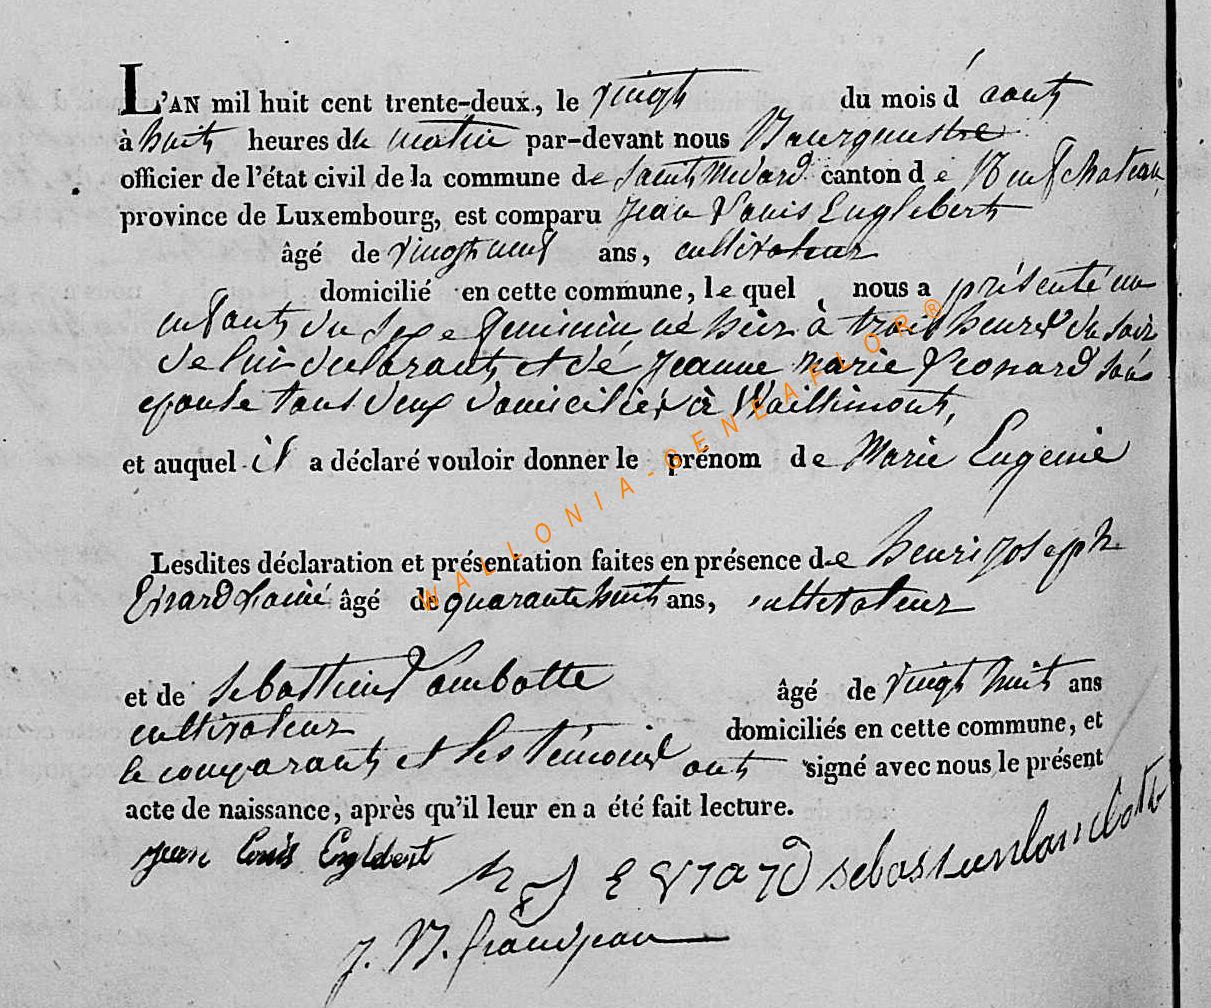 L'AN mil huit cent trente-deux., le vingt du mois d'aout
à huit heures du matin par-devant nous Bourgmestre
officier de l'état civil de la commune de Saint Médard canton de Neufchateau,
province de Luxembourg, est comparu Jean Louis Englebert
âgé de vingt neuf ans, cultivateur
domicilié en cette commune, le quel nous a présenté un
enfant du sexe feminin, né hier à trois heures du soir
de lui déclarant et de Jeanne Marie Leonard son
epouse tous deux domiciliés à Waillimont,
et auquel il a déclaré vouloir donner le prénom de Marie Eugenie
Lesdites déclaration et présentation faites en présence de henri joseph
Evrard âgé de quarante huit ans, cultivateur
et de sebastien Lambotte âgé de vingt huit ans
cultivateur domiciliés en cette commune, et
le comparant et les témoins ont signé avec nous le présent
acte de naissance, après qu'il leur en a été fait lecture.
jean Louis Englebert
h J EVrard sebastien lambotte
J. N. Grandjean
WALLONIA-GENEAFLOR®